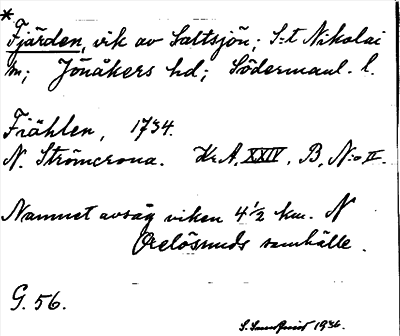 *
Fjärden, vik av Saltsjön; S:t Nikolai
sn; Jönåkers hd; Södermanl. l.
Fiählen, 1734.
N. Strömcrona. Kr A, XXIV, B, N:o II.
Namnet avsåg viken 4 1/2 km. N
Oxelösunds samhälle.
G. 56.
1936